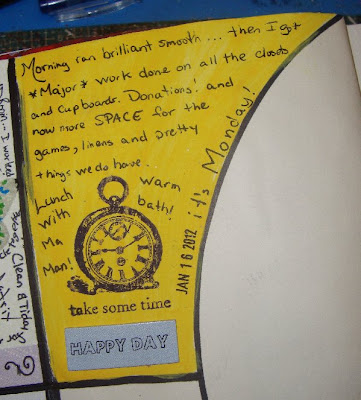 Morning ran brilliant smooth... then I got
*Major* work done on all the closets
and cupboards. Donations! and
now more SPACE for the
games, linens and pretty
things we do have.
Lunch
with
Ma
Man!
Warm
bath!
JAN 16 2012 it's Monday!
take some time
HAPPY DAY
I worked
Clean & Tidy